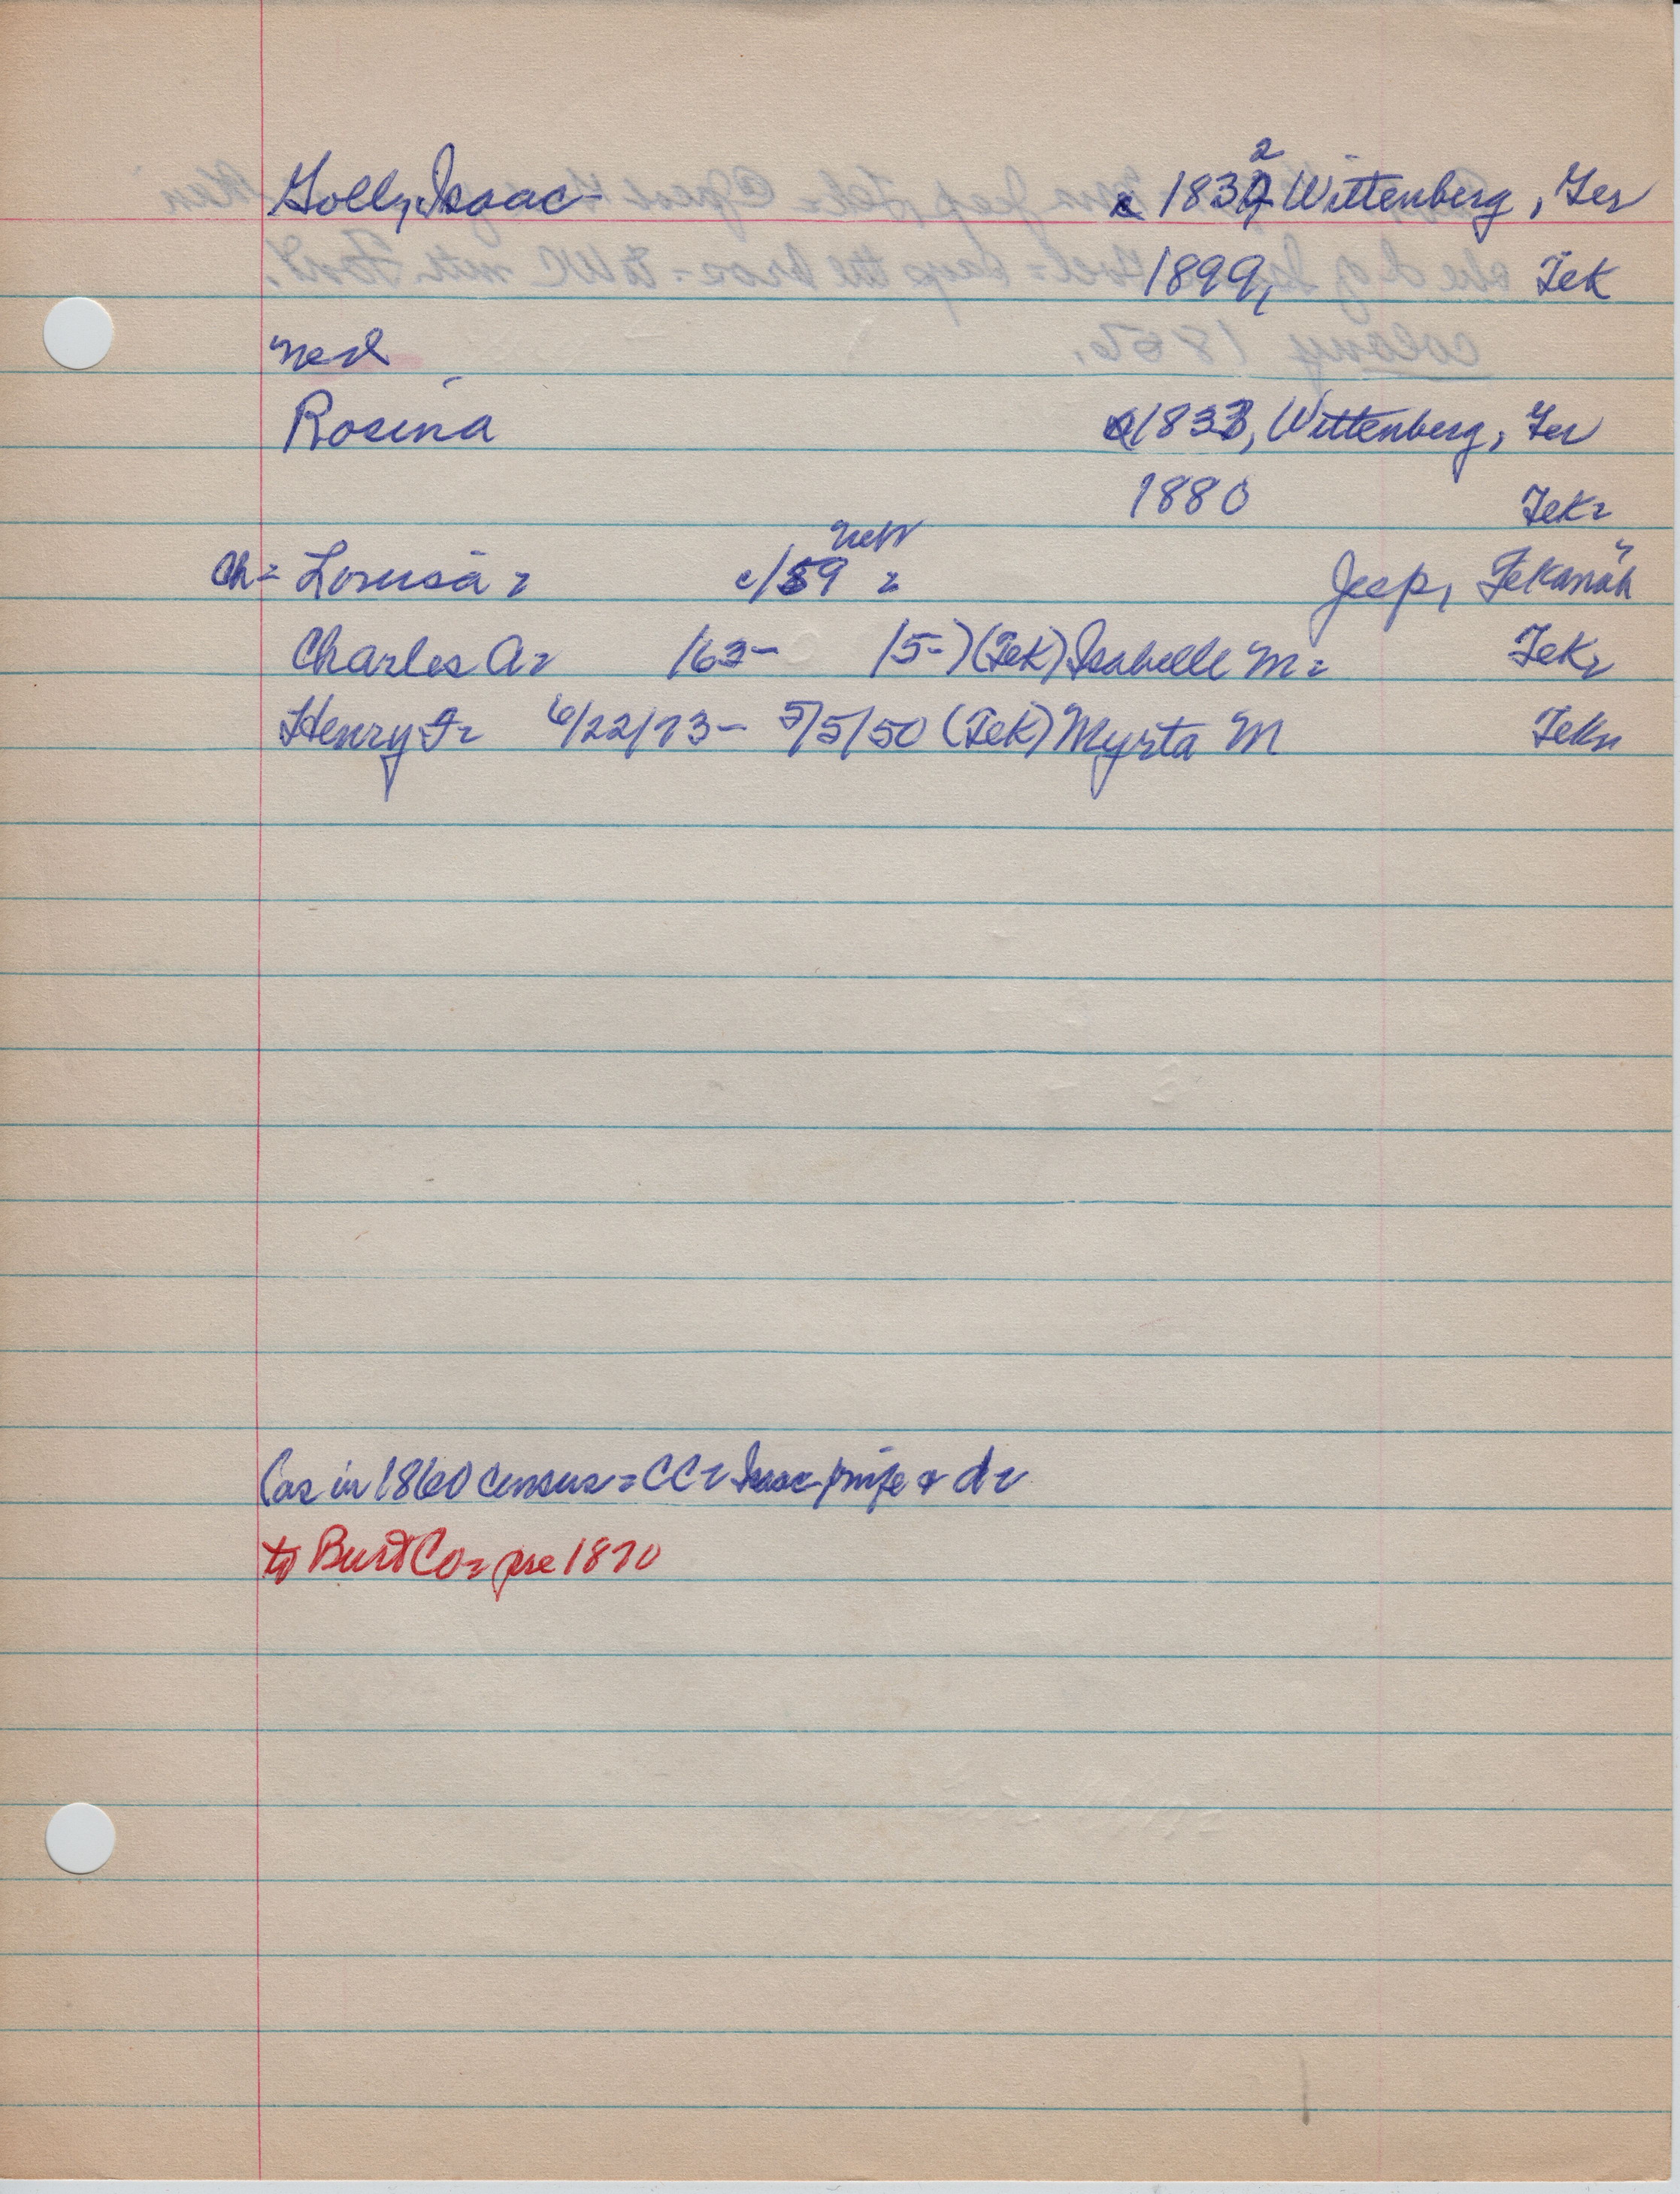 Golly, Isaac- c 1832, Wittenberg, Ger
1899, Tek
Rosina 1833, Wittenberg, Ger
1880 Tek
Ch= Lousia c/59 Nebr Jeep, Tekamah
Charles A= /63- /5-) (Tek) Isabelle M= Tek
Henry F= 6/22/73- 5/5/50 (Tek) Myrta M Tek
Cas in 1860 census = CC= Isaac, wife & d
to Burt Co= pre 1870